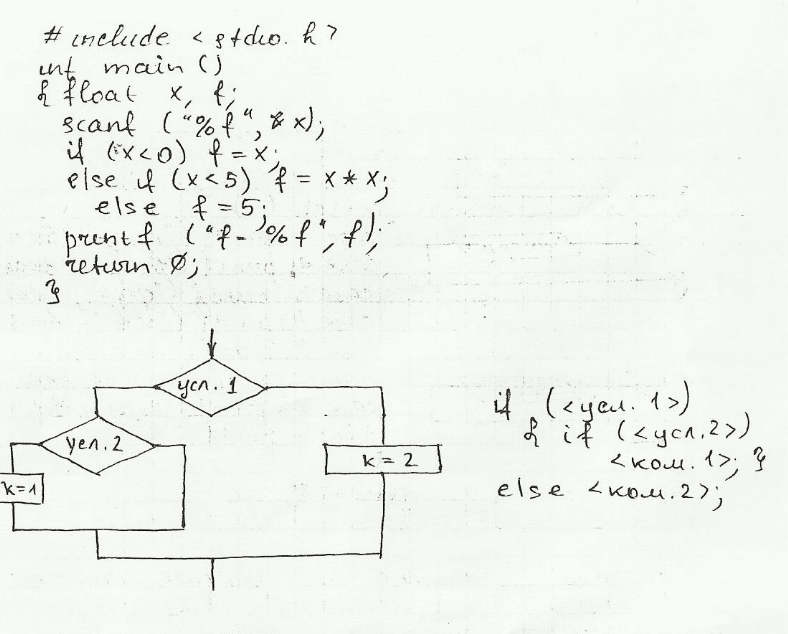 # include <stdio.h>
int main ()
{ float x, f;
scanf ("%f", &x);
if (x<0) f = x;
else if (x<5) f = x * x;
else f = 5;
printf ("f- %f", f);
return 0;
}
усл. 1
усл. 2
k=1
k = 2
if (<усл. 1>)
{ if (<усл.2>)
<ком.1>; }
else <ком.2>;